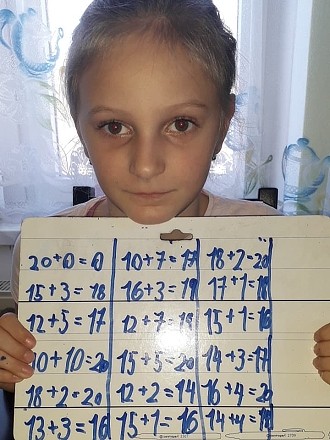 20+0=0 10+7=17 18+2=20
15+3=18 16+3=19 17+1=18
12+5=17 12+7=19 15+1=16
10+10=20 15+5=20 14+3=17
18+2=20 12+2=14 16+4=20
13+3=16 15+1=16 14+4=18